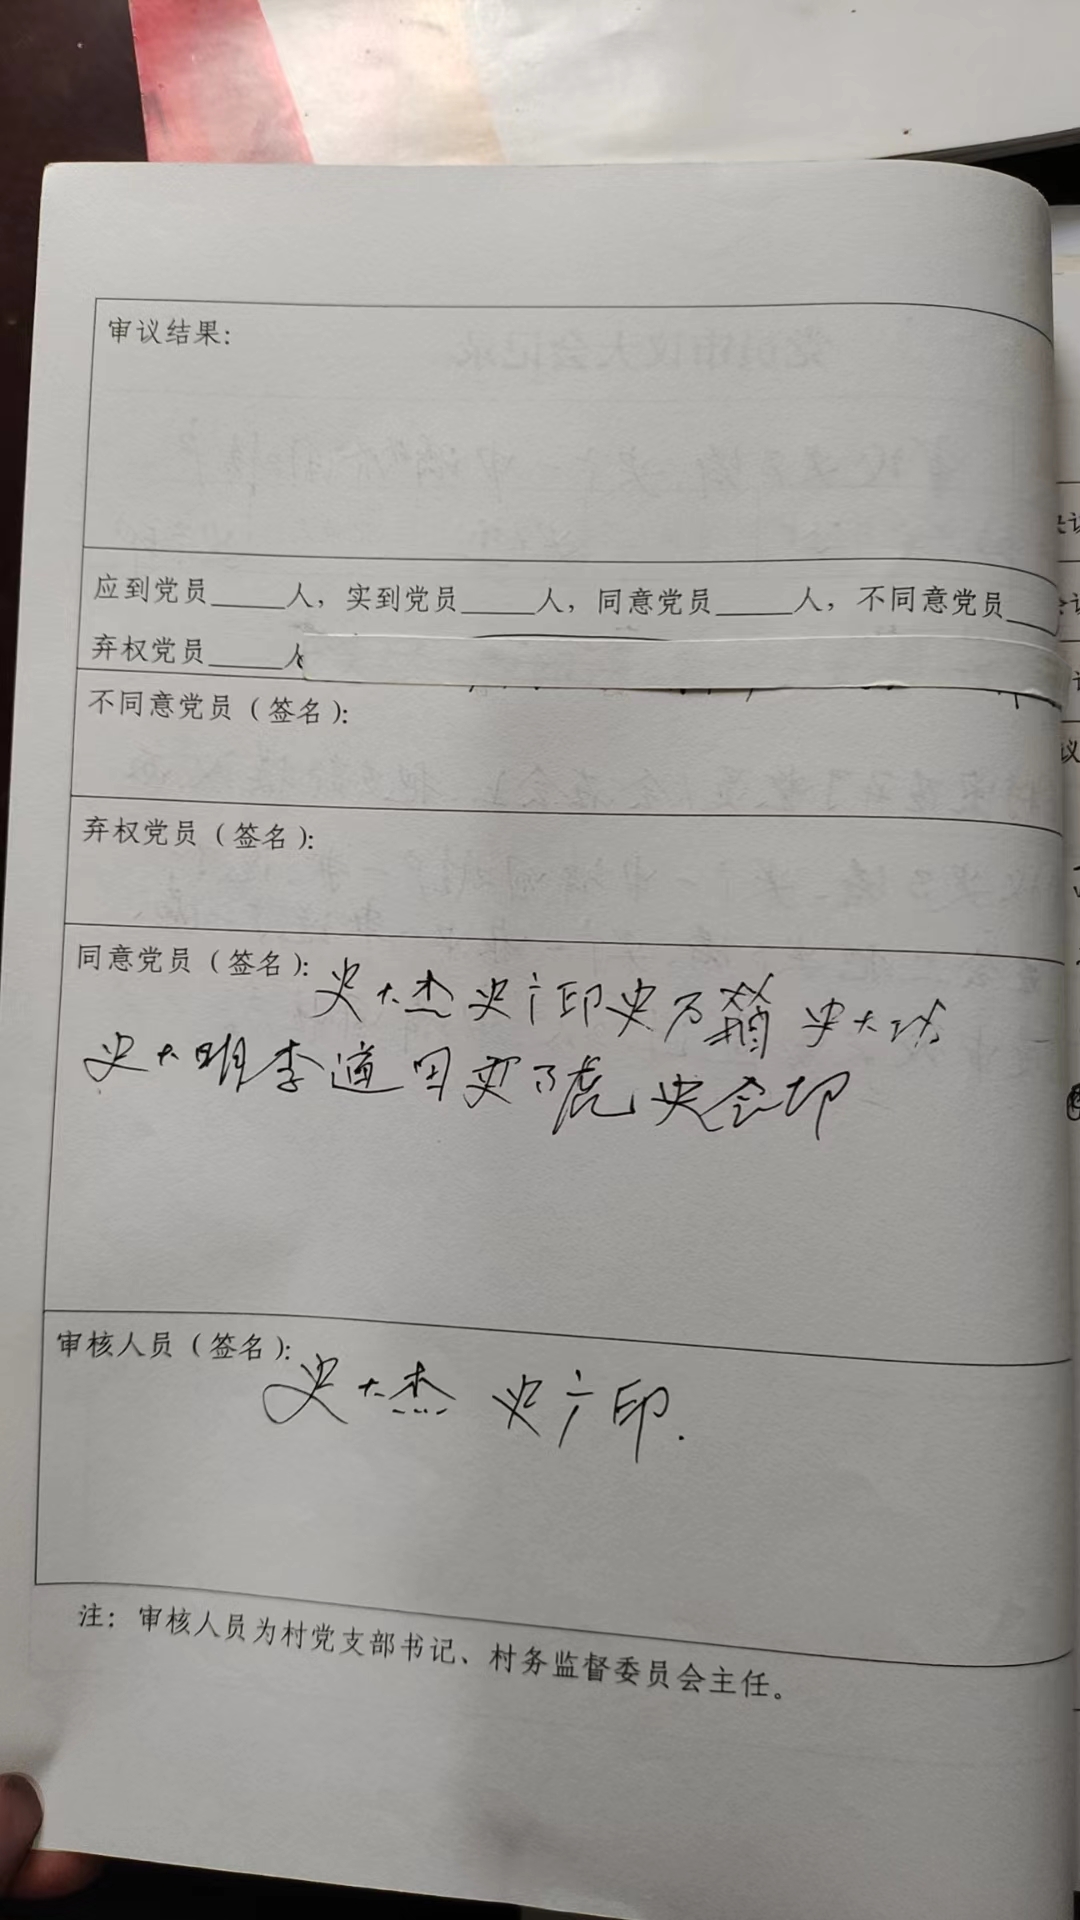 审议结果：
应到党员_____人，实到党员_____人，同意党员_____人，不同意党员___
弃权党员_____人
不同意党员（签名）：
弃权党员（签名）：
同意党员（签名）：史大杰 史广印 史万 史大
史大明 李道田 史万虎 史会印
审核人员（签名）：
史大杰 史广印.
注：审核人员为村党支部书记、村务监督委员会主任。